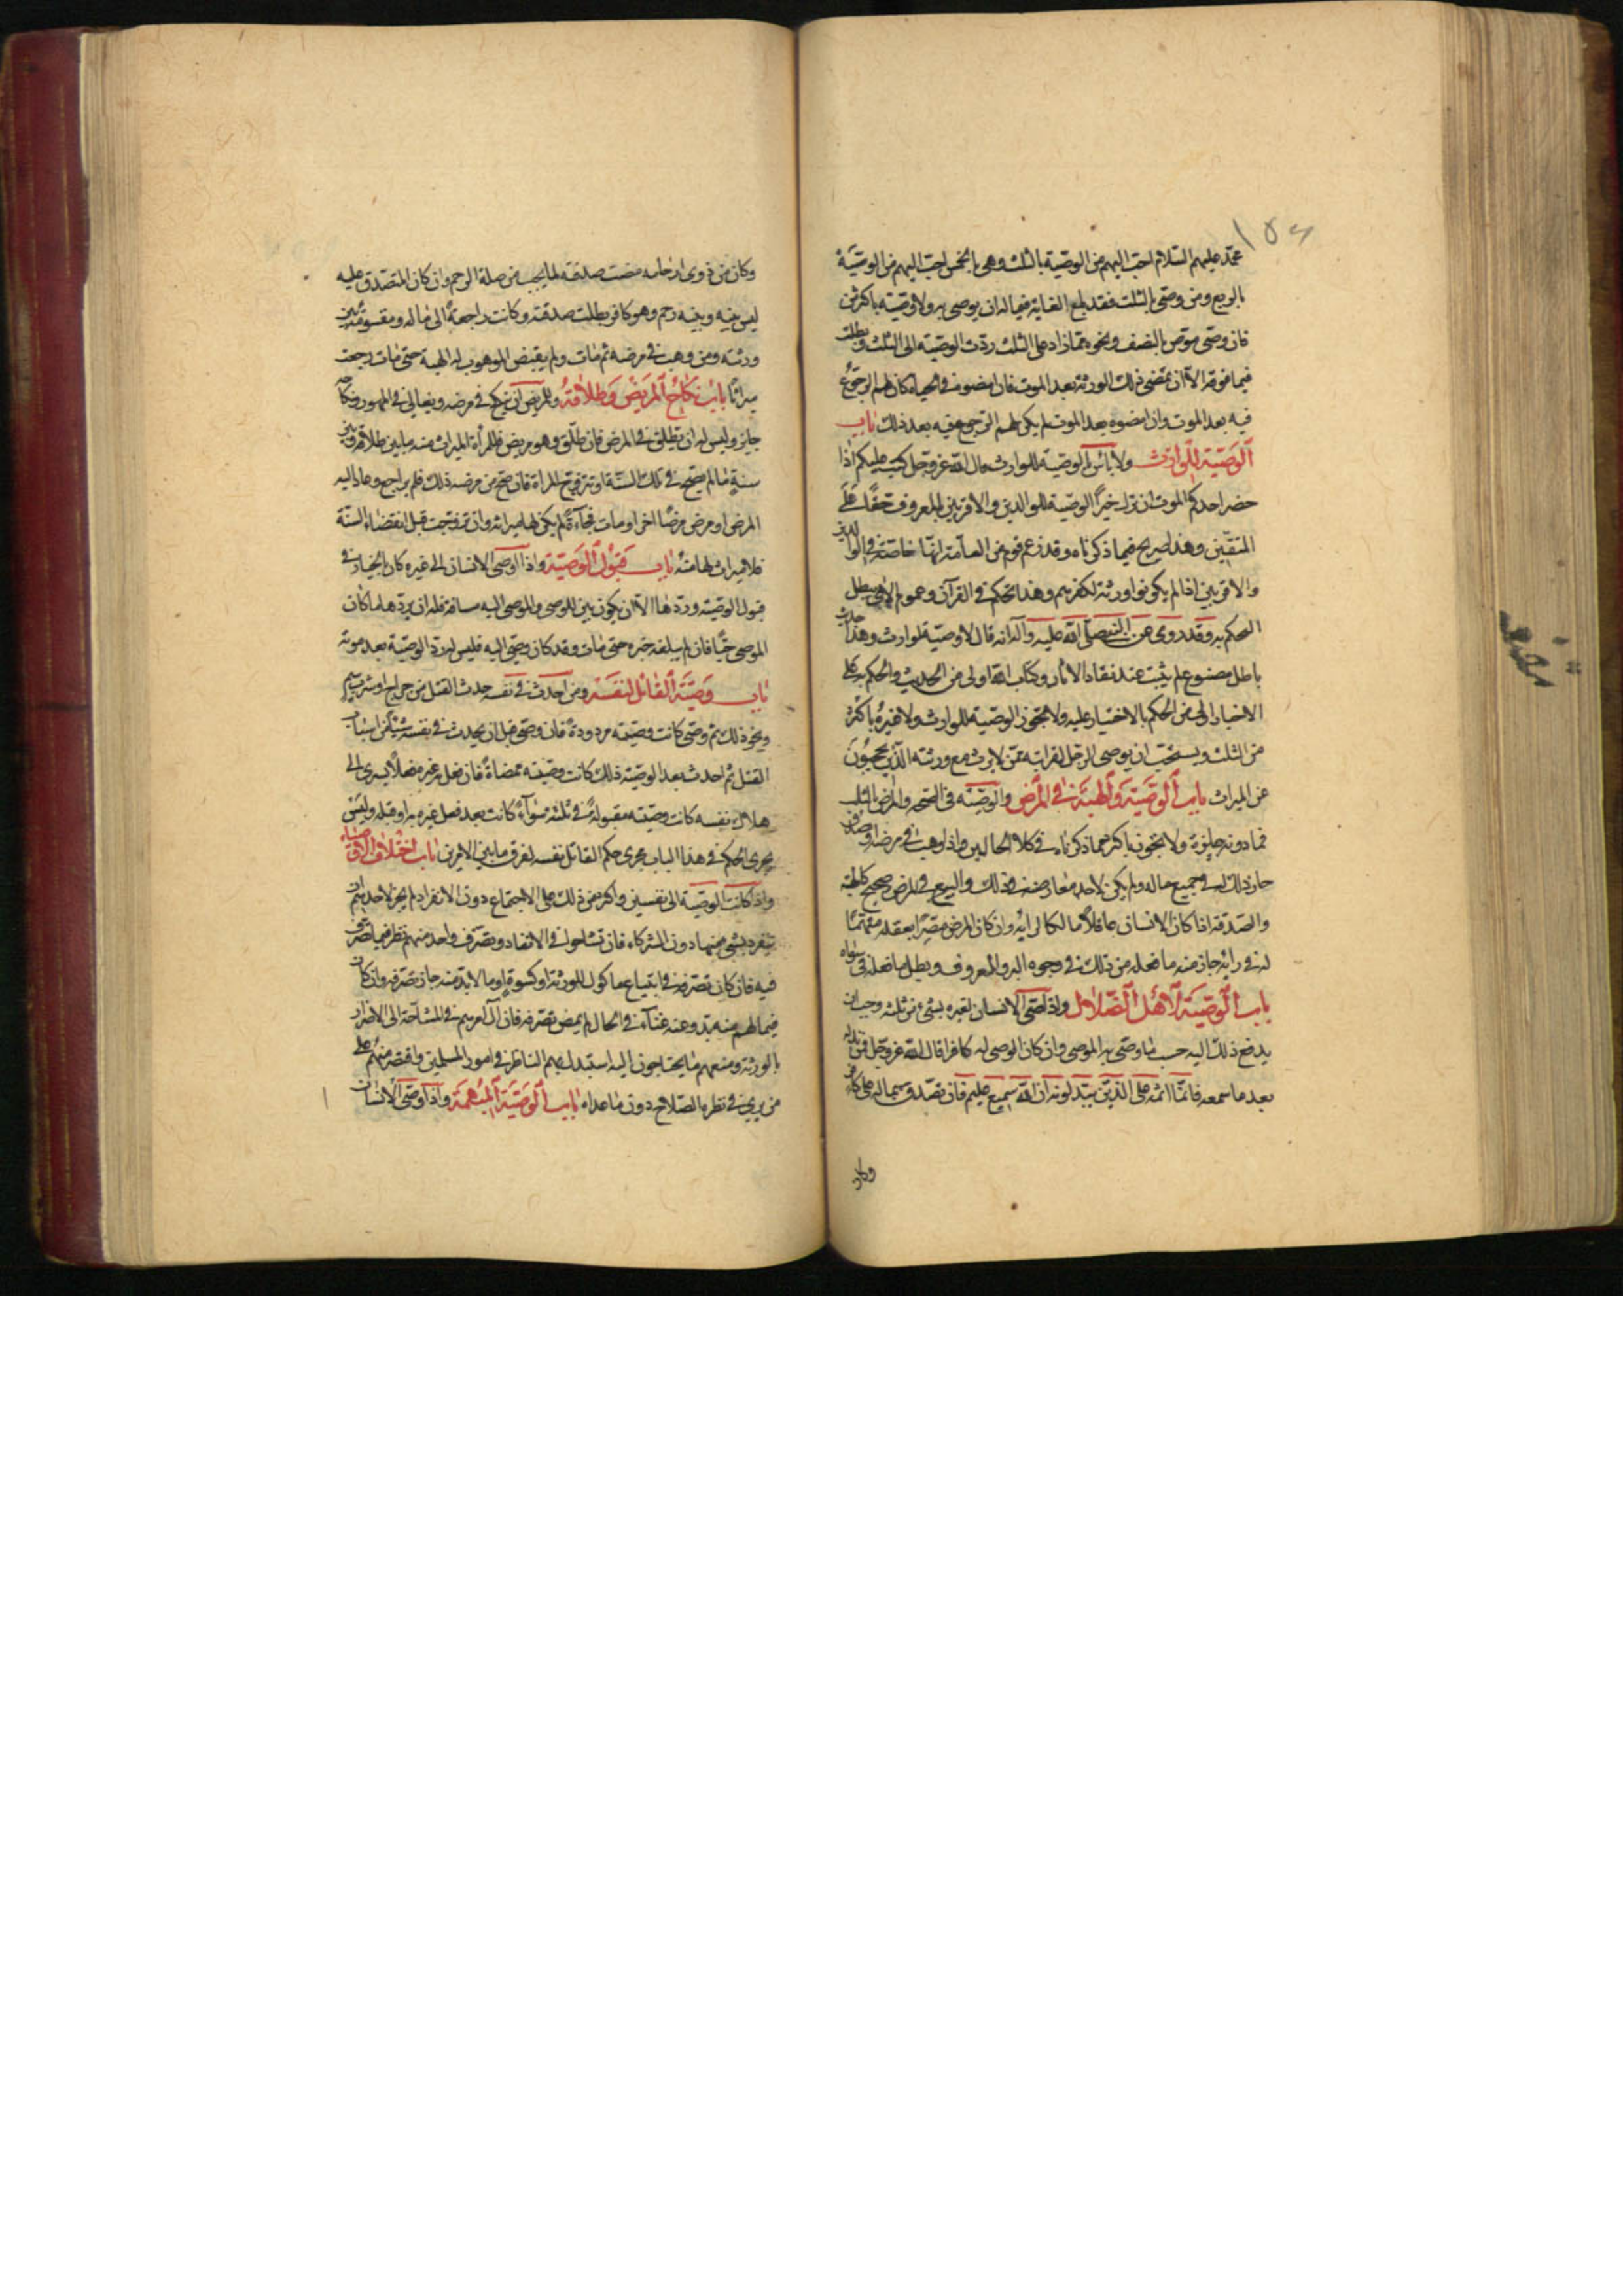 محمد عليهم السلام احب اليهم من الوصية بالثلث وهى بالخمس احب اليهم من الوصية
بالربع ومن وصى بالثلث فقد بلغ الغاية فيما له ان يوصى به ولا وصية باكثر من
فان وصى موص بالنصف ونحوه مما زاد على الثلث ردّت الوصية الى الثلث وبطلت
فيما فوقه الا ان يمضى ذلك الورثة بعد الموت فان امضوه فى الحياة كان لهم الرجوع
فيه بعد الموت وان امضوه بعد الموت لم يكن لهم الرجوع فيه بعد ذلك باب
الوصية للوارث ولا بأس بالوصية للوارث قال الله عز وجل كتب عليكم اذا
حضر احدكم الموت ان ترك خيرًا الوصية للوالدين والاقربين بالمعروف حقًا على
المتقين وهذا صريح فيما ذكرناه وقد زعم قوم من العامة انها خاصة فى الوالدين
والاقربين اذا لم يكونوا ورثة لكفرهم وهذا تحكم فى القرآن وعموم الاى يبطل
التحكم به وقد روى عن النبى صلى الله عليه وآله انه قال لا وصية لوارث وهذا حديث
باطل مصنوع لم يثبت عند نقاد الآثار وكتاب الله اولى من الحديث والحكم به على
الاخبار اولى من الحكم بالاخبار عليه ولا تجوز الوصية للوارث ولا غيره باكثر
من الثلث ويستحب ان يوصى الرجل لقرابته ممن لا يرث مع ورثته الذين يحجبون
عن الميراث باب الوصية والهبة فى المرض والوصية فى الصحة والمرض بالثلث
فما دونه جايزة ولا تجوز باكثر مما ذكرناه فى كلا الحالين واذا وهب فى مرضه او تصدق
جاز ذلك له فى جميع ماله ولم يكن لاحد معارضته فى ذلك والبيع فى المرض صحيح كالهبة
والصدقة اذا كان الانسان عاقلًا مالكا لرأيه وان كان المرض مغيرًا لعقله متهمًا
له فى رأيه جاز منه ما فعله من ذلك فى وجوه البر والمعروف وبطل ما فعله فى سواه
باب الوصية لاهل الضلال واذا وصى الانسان لغيره بشىء من ثلثه وجب ان
يدفع ذلك اليه حسب ما وصى به الموصى وان كان الموصى له كافرا قال الله عز وجل فمن بدله
بعد ما سمعه فانما اثمه على الذين يبدلونه ان الله سميع عليم فان تصدق بماله على كافر
وكان
وكان من ذوى ارحامه مضت صدقته لما يجب من صلة الرحم وان كان المتصدق عليه
ليس بينه وبينه رحم وهو كافر بطلت صدقته وكانت راجعة الى ماله ومقسومة بين
ورثته ومن وهب فى مرضه ثم مات ولم يقبض الموهوب له الهبة حتى مات رجعت
ميراثا باب نكاح المريض وطلاقه وللمريض ان ينكح فى مرضه ويغالى فى المهور ونكاحه
جايز وليس له ان يطلق فى المرض فان طلق وهو مريض فللمرأة الميراث منه ما بين طلاقه وبين
سنة ما لم يصح فى تلك السنة او تتزوج المرأة فان صح من مرضه ذلك فلم يراجع وعاد اليه
المرض او مرض مرضًا اخر او مات فجاءةً لم يكن لها ميراثه وان تزوجت قبل انقضاء السنة
فلا ميراث لها منه باب قبول الوصية واذا اوصى الانسان الى غيره كان بالخيار فى
قبول الوصية وردها الا ان يكون بين الموصى والموصى اليه مسافة فله ان يردها ما كان
الموصى حيًا فان لم يبلغه خبره حتى مات وقد كان وصى اليه فليس له رد الوصية بعد موته
باب وصية القاتل لنفسه ومن احدث فى نفسه حدث القتل من جراح او شرب سم
ونحو ذلك ثم وصى كانت وصيته مردودة فان وصى قبل ان يحدث فى نفسه شيئا من اسباب
القتل ثم احدث بعد الوصية ذلك كانت وصيته ممضاةً فان فعل به غيره فعلًا يسرى الى
هلاك نفسه كانت وصيته مقبولة فى ثلثه سواء كانت بعد فعل غيره به او قبله وليس
يجرى الحكم فى هذا الباب مجرى حكم القاتل نفسه لفرق ما بين الامرين باب اختلاف الاوصياء
واذا كانت الوصية الى نفسين واكثر من ذلك على الاجتماع دون الانفراد لم يجز لاحد منهم
يتفرد بشىء منها دون الشركاء فان تشاحوا فى الانفاد وتصرف واحد منهم نظر فيما تصرف
فيه فان كان تصرفه فى ابتياع مأكول للورثة او كسوة او ما لا بد منه جاز تصرفه وان كان
فيما لهم منه بد وعنه غناء فى الحال لم يمض تصرفه فان آل امرهم فى المشاحة الى الاضرار
بالورثة ومنعهم ما يحتاجون اليه استبدل بهم الناظر فى امور المسلمين واقتصر منهم على
من يرى فى نظره الصلاح دون ما عداه باب الوصية المبهمة واذا وصى الانسان